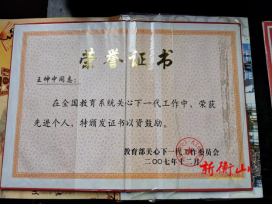 荣誉证书
王坤中同志：
在全国教育系统关心下一代工作中、荣获
先进个人，特颁发证书以资鼓励。
教育部关心下一代工作委员会
二〇〇七年十二月
新衡山